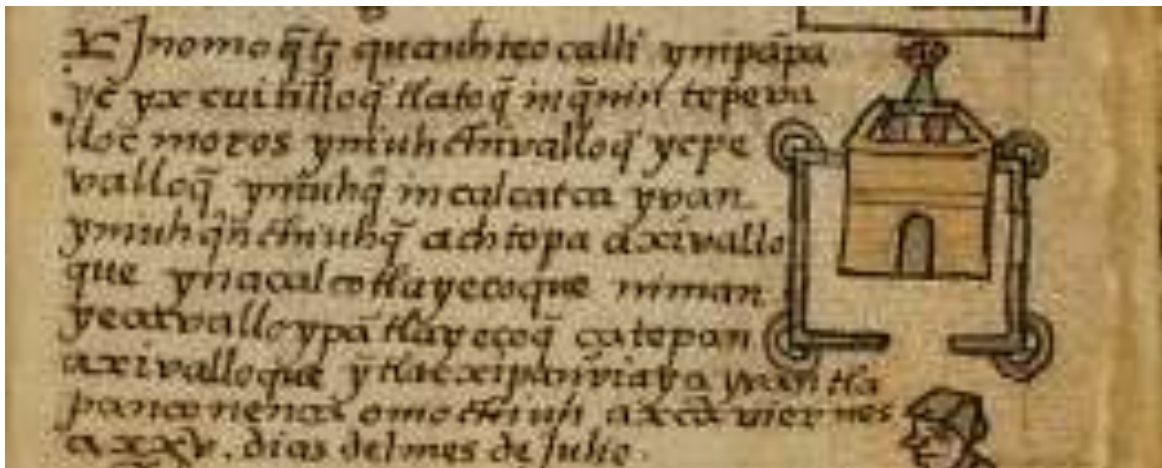 ynomoq̃tz quauhteocalli ynipãpa
yc̃ yx cuitilloq̃ tlatoq̃ inq̃nin tepeva
lloc moros ymiuh valloq̃ yepe
valloq̃ ymiuhq̃ in calcatca yvan
ymiuhq̃n achtopa axivallo
que ynacalcotlayecoque niman
yeatvalloypã tlayecoq̃ catepan
axivalloque ytlacxipanviaya yvan tla
omochiuh axcã viernes
a xxv. dias del mes de Julio.